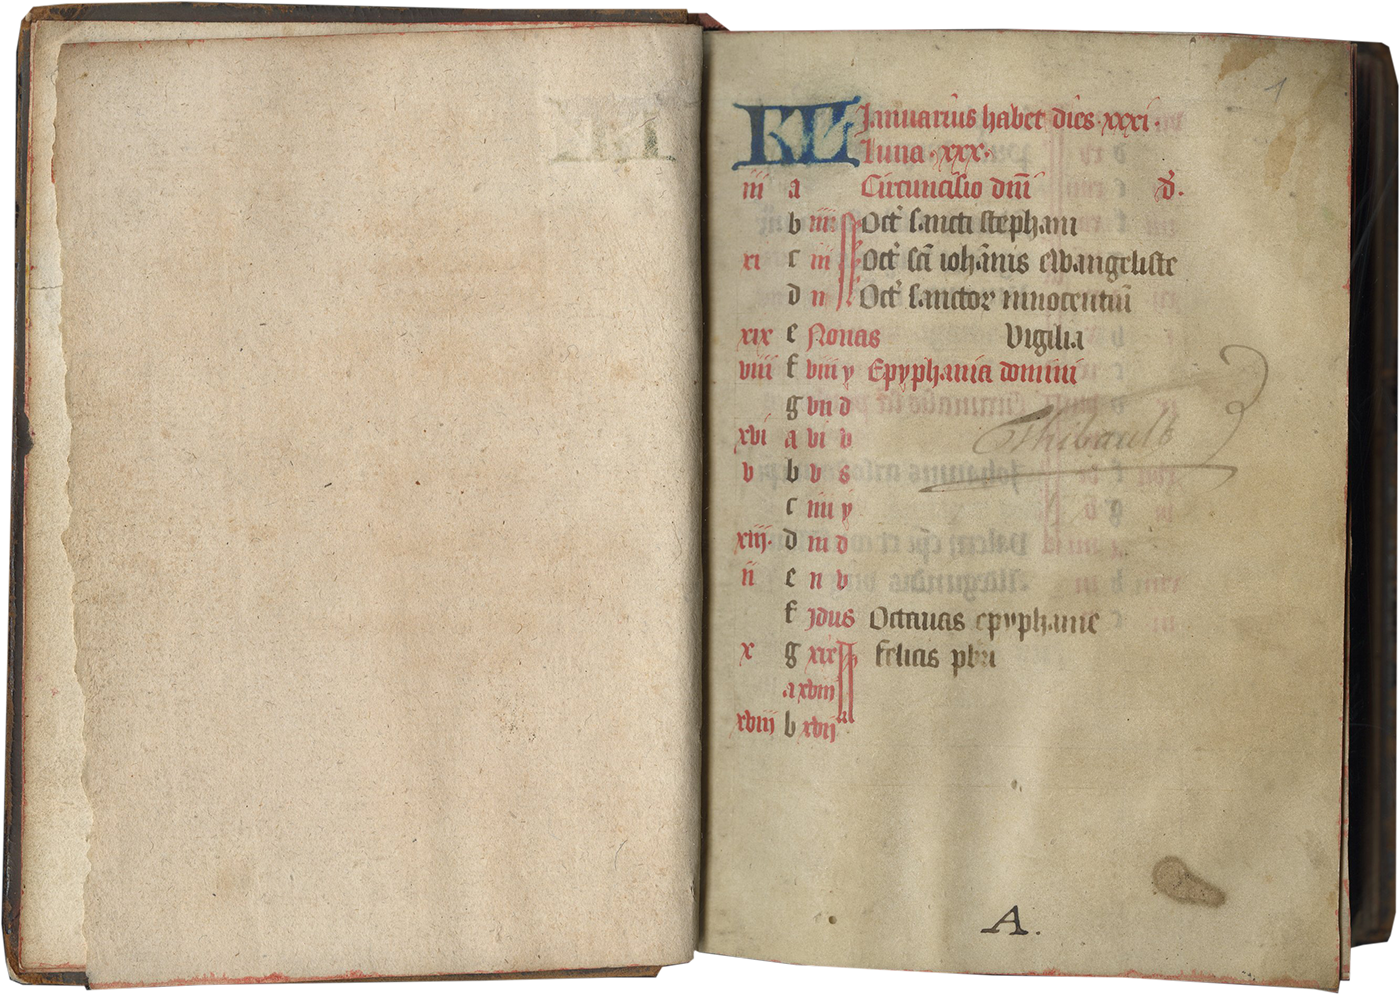 1
KL Januarius habet dies .xxxi.
luna .xxx.
iii a Circuncisio dñi d.
b iiii Oct' sancti stephani
xi c iii Oct' scī iohānis ewangeliste
d ii Oct' sanctor innocentiū
xix e Nonas Vigilia
viii f viii y Epyphania domini
g vii d
xvi a vi v
Thibault
v b v s
c iiii y
xiij. d iii d
ii e ii v
f jdus Octauas epyphanie
x g xix felicis pbri
a xviii
xviii b xvij
A.